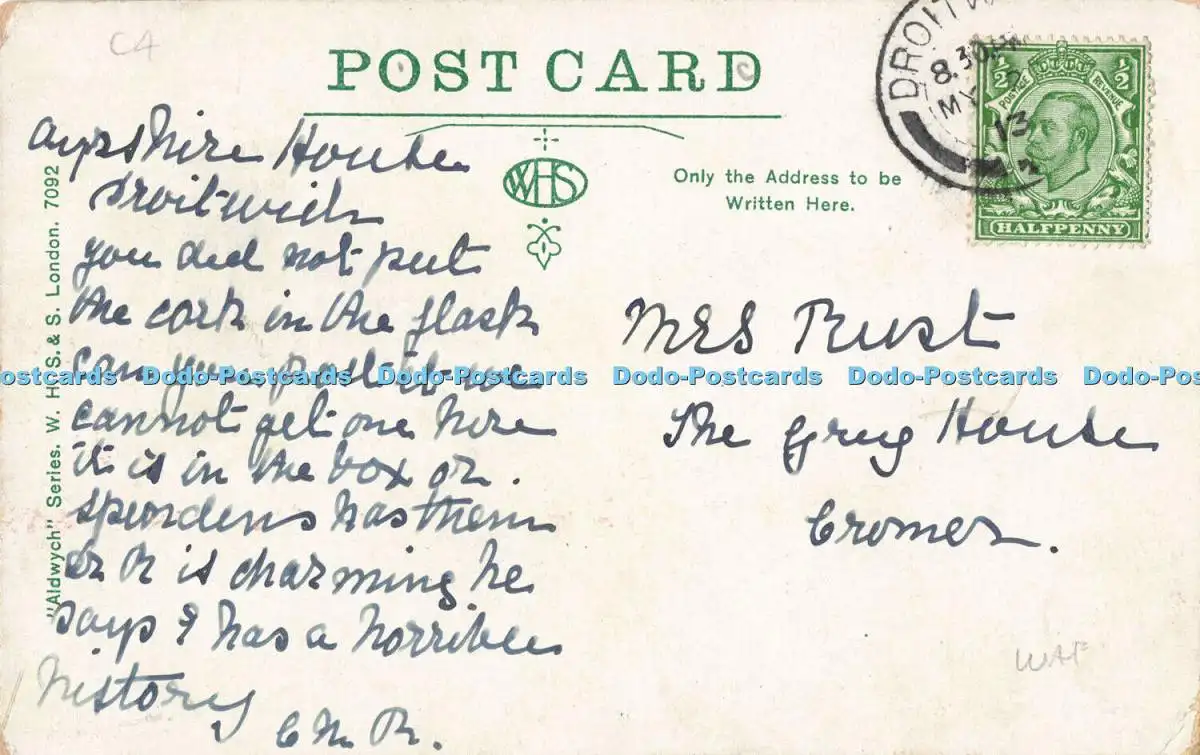 C4
POST CARD
DROITW
8.30 PM
MY 2
13
½ ½
POSTAGE REVENUE
HALFPENNY
WHS
Only the Address to be
Written Here.
"Aldwych" Series. W. H. S. & S. London. 7092
Ayrshire House
Droitwich
you did not put
the cork in the flask
can you post it we
cannot get one here
it is in the box or
has them
Dr R is charming he
says & has a horrible
history
C M R.
Mrs Rust
The Grey House
Cromer.
Dodo-Postcards Dodo-Postcards Dodo-Postcards Dodo-Postcards Dodo-Postcards Dodo-Postcards